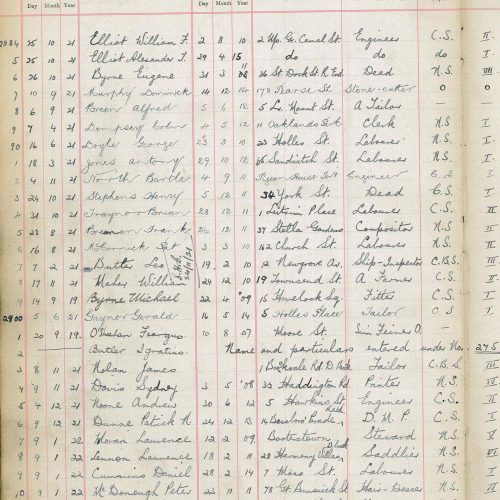 Day Month Year Day Month Year
2884 25 10 21 Elliot William F. 2 8 10 2 Up. Gr. Canal St. Engineer C.S. II.
5 25 10 21 Elliot Alexander T. 29 4 15 do do do I.
6 26 10 21 Byrne Eugene 31 3 11 26 St. Dock St. R. End Dead N.S. VII
7 10 9 21 Murphy Dominick 14 12 14 178 Pearse St. Stone-cutter O O
8 6 9 21 Breen Alfred 5 6 12 5 Lr. Mount St. A Tailor C.S. I.
9 7 4 21 Dempsey Colm 4 5 12 11 Oaklands Park Clerk N.S I.
90 16 6 21 Doyle George 23 3 10 23 Holles St. Labourer N.S. I.
1 18 3 21 Jones Antony 29 10 12 Sandwith St. Labourer N.S. I.
2 4 11 21 North Bartle 4 9 11 Engineer C.S I
3 24 10 21 Stephens Henry 5 12 11 34 York St. Dead C.S. I.
4 31 10 21 Traynor Brian 28 12 11 1 Leitrim Place Labourer C.S. I.
5 23 8 21 Brennan Frank 26 12 11 37 Stella Gardens Compositor N.S II
6 16 8 21 McCormick Pat 3 3 10 162 Church St. Labourer N.S. II
7 7 2 21 Butler Leo 19 2 10 12 Newgrove Av. Ship-Inspector C.B.S. III
8 17 11 21 Maher William 24 12 10 19 Townsend St. A Farmer C.S. II
9 14 9 19 Byrne Michael 22 4 '09 15 Havelock Sq. Fitter C.S. I
2900 5 6 21 Gaynor Gerald 16 5 14 5 Holles Place Tailor C.S I
1 20 9 19 10 8 07 Moore St. Sinn Feiner O
2 Butler Ignatius. Name and particulars entered under No. 275
3 8 11 21 Nolan James Rd D. Tailor C.B.S. III
4 9 11 21 Davis Sydney 3 5 '08 33 Haddington Rd Painter N.S. IV
5 4 12 21 Noone Andrew 30 6 12 5 Hawkins St. Engineer C.S. II
6 9 12 21 Dunne Patrick N. 24 12 13 14 D.M.P. C.S. I
7 9 1 22 Horan Laurence 12 2 09. Booterstown Steward N.S. V
8 9 1 22 Lennon Laurence 18 2 11 28 Harmony Villas, Saddler N.S. II
9 9 1 22 Cummins Daniel 28 2 14 7 Moss St. Labourer N.S. I
10 9 1 22 McDonough Peter 23 11 11 78 Gt. Brunswick St Hair-Dresser N.S. I